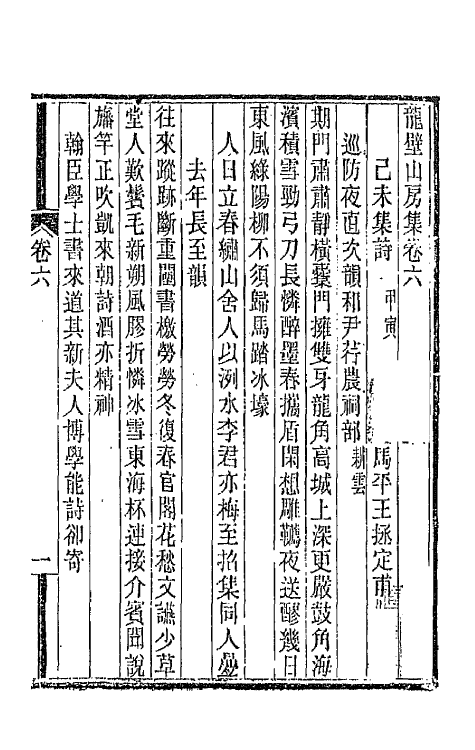 龍壁山房集卷六
己未集詩 甲寅 馬平王拯定甫
巡防夜直次韻和尹荇農祠部 耕雲
期門肅肅靜橫櫜門擁雙牙龍角高城上深更嚴鼓角海
濱積雪勁弓刀長憐醉墨春攜盾閑想雕韉夜送醪幾日
東風綠陽柳不須歸馬踏冰壕
人日立春繡山舍人以洌水李君亦梅至招集同人疊
去年長至韻
往來蹤跡斷重闉書檄勞勞冬復春官閣花愁文讌少草
堂人歎鬢毛新朔風膠折憐冰雪東海杯連接介賓聞說
旛竿正吹凱來朝詩酒亦精神
翰臣學士書來道其新夫人博學能詩卻寄
卷六
一